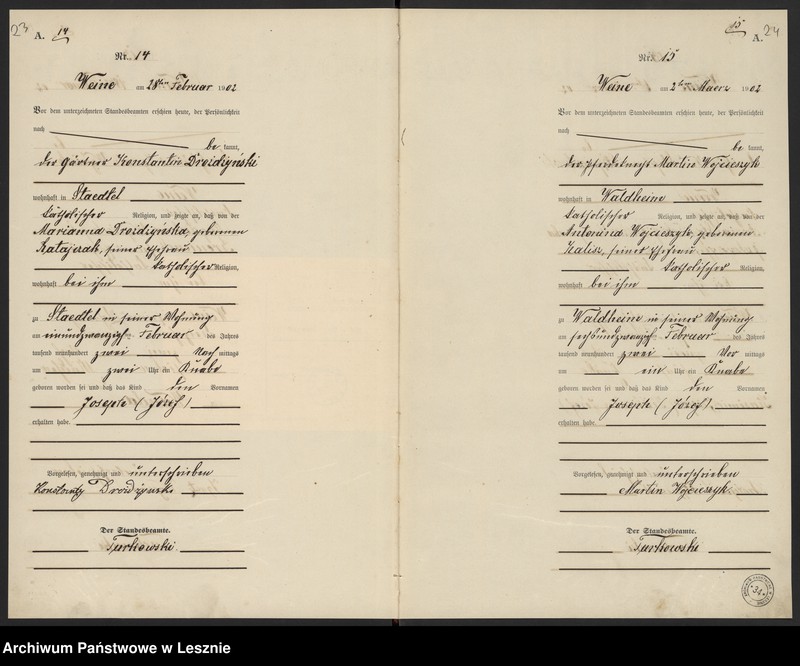 23
A. 14
Nr. 14
Weine am 28ten Februar 1902
Vor dem unterzeichneten Standesbeamten erschien heute, der Persönlichkeit
nach
be kannt,
der Gärtner Konstantin Droidzyński
wohnhaft in Staedtel
katholischer Religion, und zeigte an, daß von der
Marianna Droidzynska, geborenen
Ratajczak, seiner Ehefrau
katholischer Religion,
wohnhaft bei ihm
zu Staedtel in seiner Wohnung
am einundzwanzigsten Februar des Jahres
tausend neunhundert zwei Nach mittags
um zwei Uhr ein Knabe
geboren worden sei und daß das Kind den Vornamen
Joseph (Józef)
erhalten habe.
Vorgelesen, genehmigt und unterschrieben
Konstanty Droidzynski
Der Standesbeamte.
Turkowski
15
A. 24
Nr. 15
Weine am 2ten Maerz 1902
Vor dem unterzeichneten Standesbeamten erschien heute, der Persönlichkeit
nach
be kannt,
der Pferdeknecht Martin Wojcieszyk
wohnhaft in Waldheim
katholischer Religion, und zeigte an, daß von der
Antonina Wojcieszyk, geborenen
Kalisz, seiner Ehefrau
katholischer Religion,
wohnhaft bei ihm
zu Waldheim in seiner Wohnung
am sechsundzwanzigsten Februar des Jahres
tausend neunhundert zwei Vor mittags
um ein Uhr ein Knabe
geboren worden sei und daß das Kind den Vornamen
Joseph (Józef)
erhalten habe.
Vorgelesen, genehmigt und unterschrieben
Martin Wojcieszyk
Der Standesbeamte.
Turkowski
34
Archiwum Państwowe w Lesznie